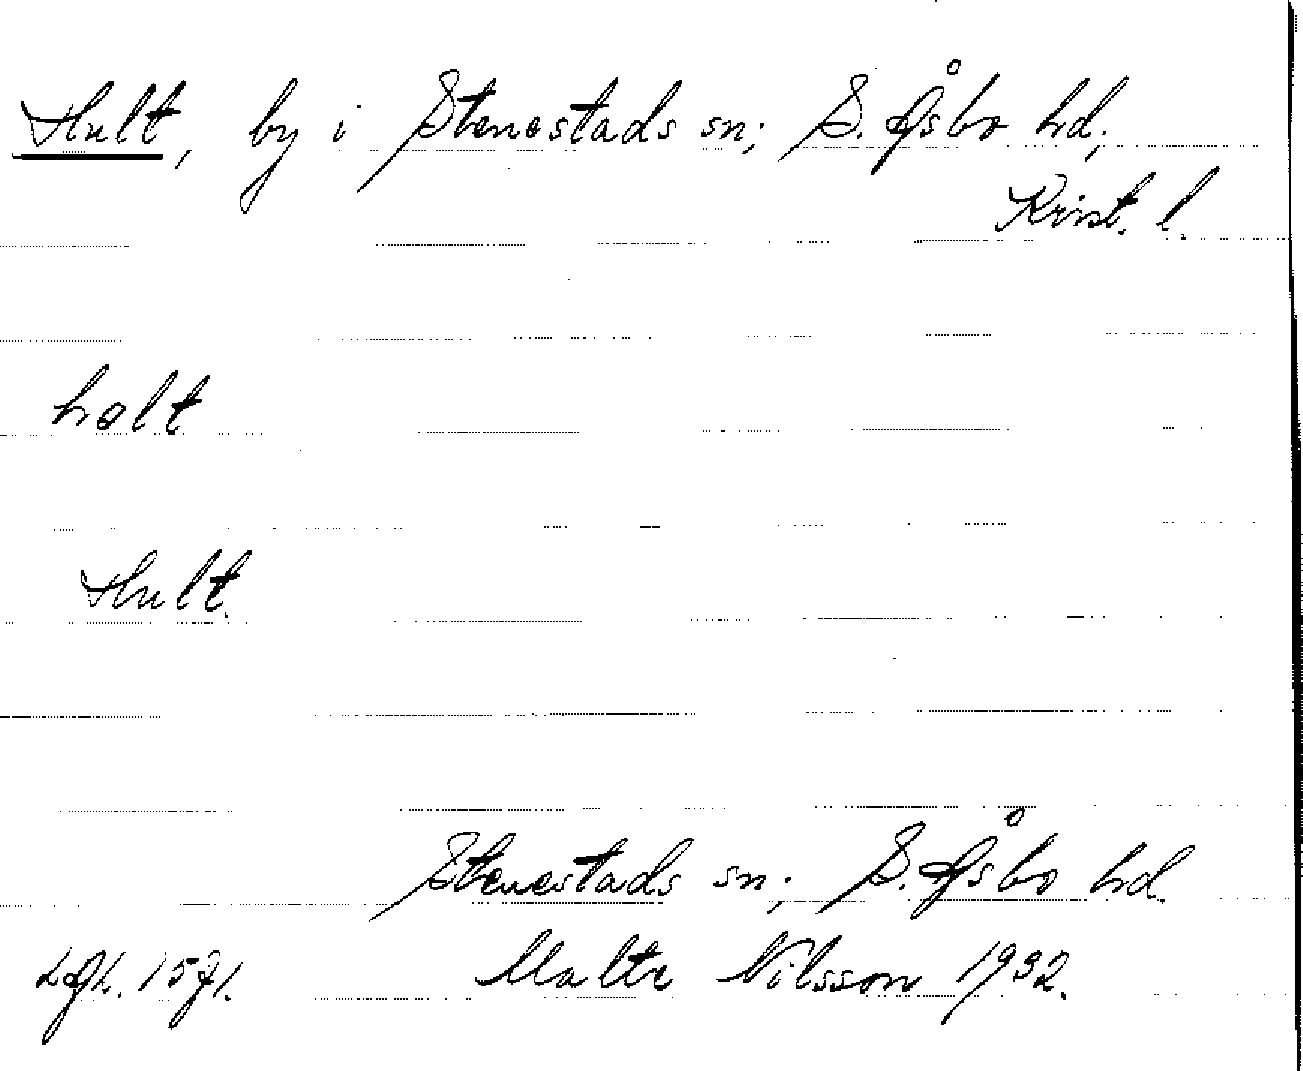 Hult, by i Stenestads sn; S. Åsbo hd,
Krist. l.
holt
Hult.
Stenestads sn; S. Åsbo hd.
Malte Nilsson 1932.